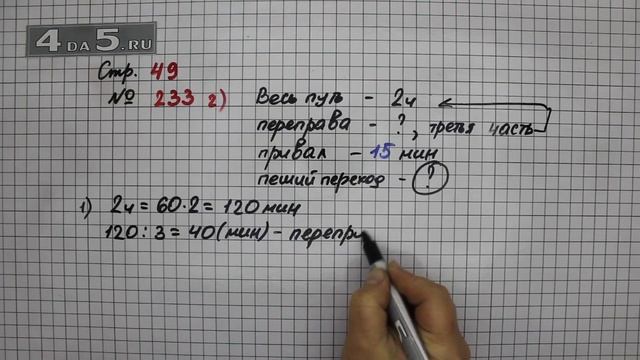 4 DA 5.RU
Стр. 49
№ 233 г)
Весь путь - 2ч
переправа - ?, третья часть
привал - 15 мин
пеший переход - ?
1) 2ч = 60·2 = 120 мин
120 : 3 = 40 (мин) - перепр